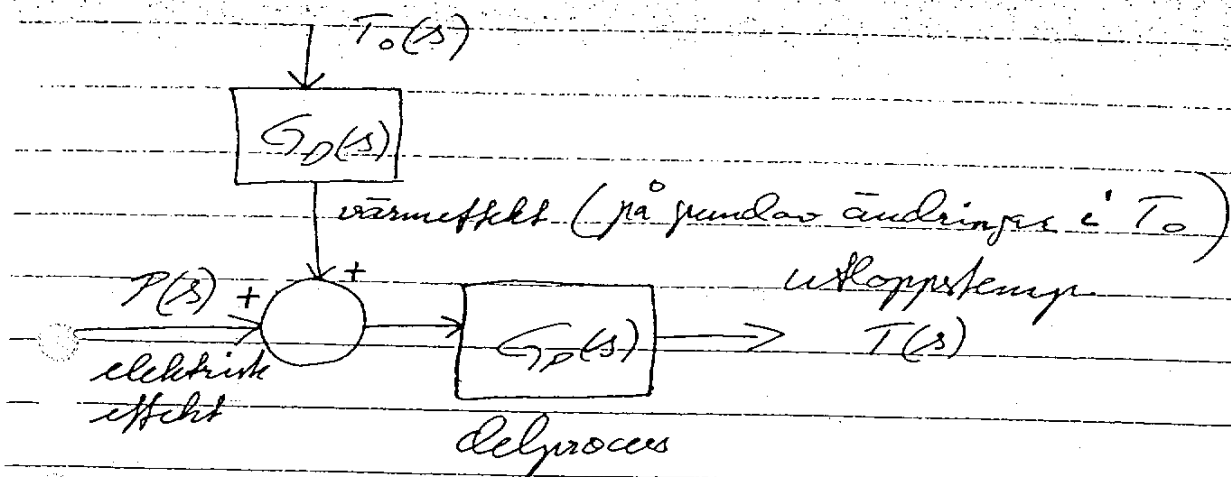 T₀(s)
G_D(s)
värmeeffekt (på grund av ändringar i T₀)
P(s) + +
utloppstemp.
G_P(s)
T(s)
elektrisk
effekt
delprocess